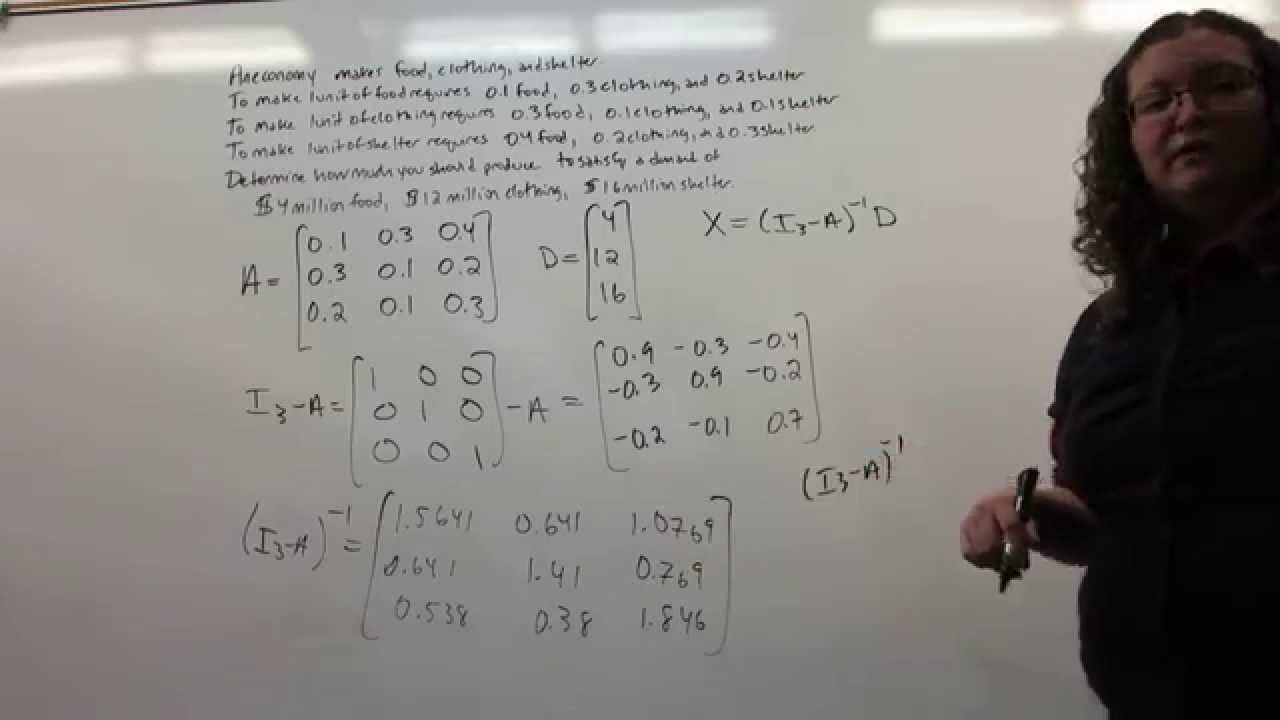 An economy makes food, clothing, and shelter.
To make 1 unit of food requires 0.1 food, 0.3 clothing, and 0.2 shelter
To make 1 unit of clothing requires 0.3 food, 0.1 clothing, and 0.1 shelter
To make 1 unit of shelter requires 04 food, 0.2 clothing, and 0.3 shelter.
Determine how much you should produce to satisfy a demand of
$4 million food, $12 million clothing, $16 million shelter.
A = [0.1 0.3 0.4
0.3 0.1 0.2
0.2 0.1 0.3]
D = [4
12
16]
X = (I₃-A)⁻¹ D
I₃-A = [1 0 0
0 1 0
0 0 1] - A = [0.9 -0.3 -0.4
-0.3 0.9 -0.2
-0.2 -0.1 0.7]
(I₃-A)⁻¹
(I₃-A)⁻¹ = [1.5641 0.641 1.0769
0.641 1.41 0.769
0.538 0.38 1.846]